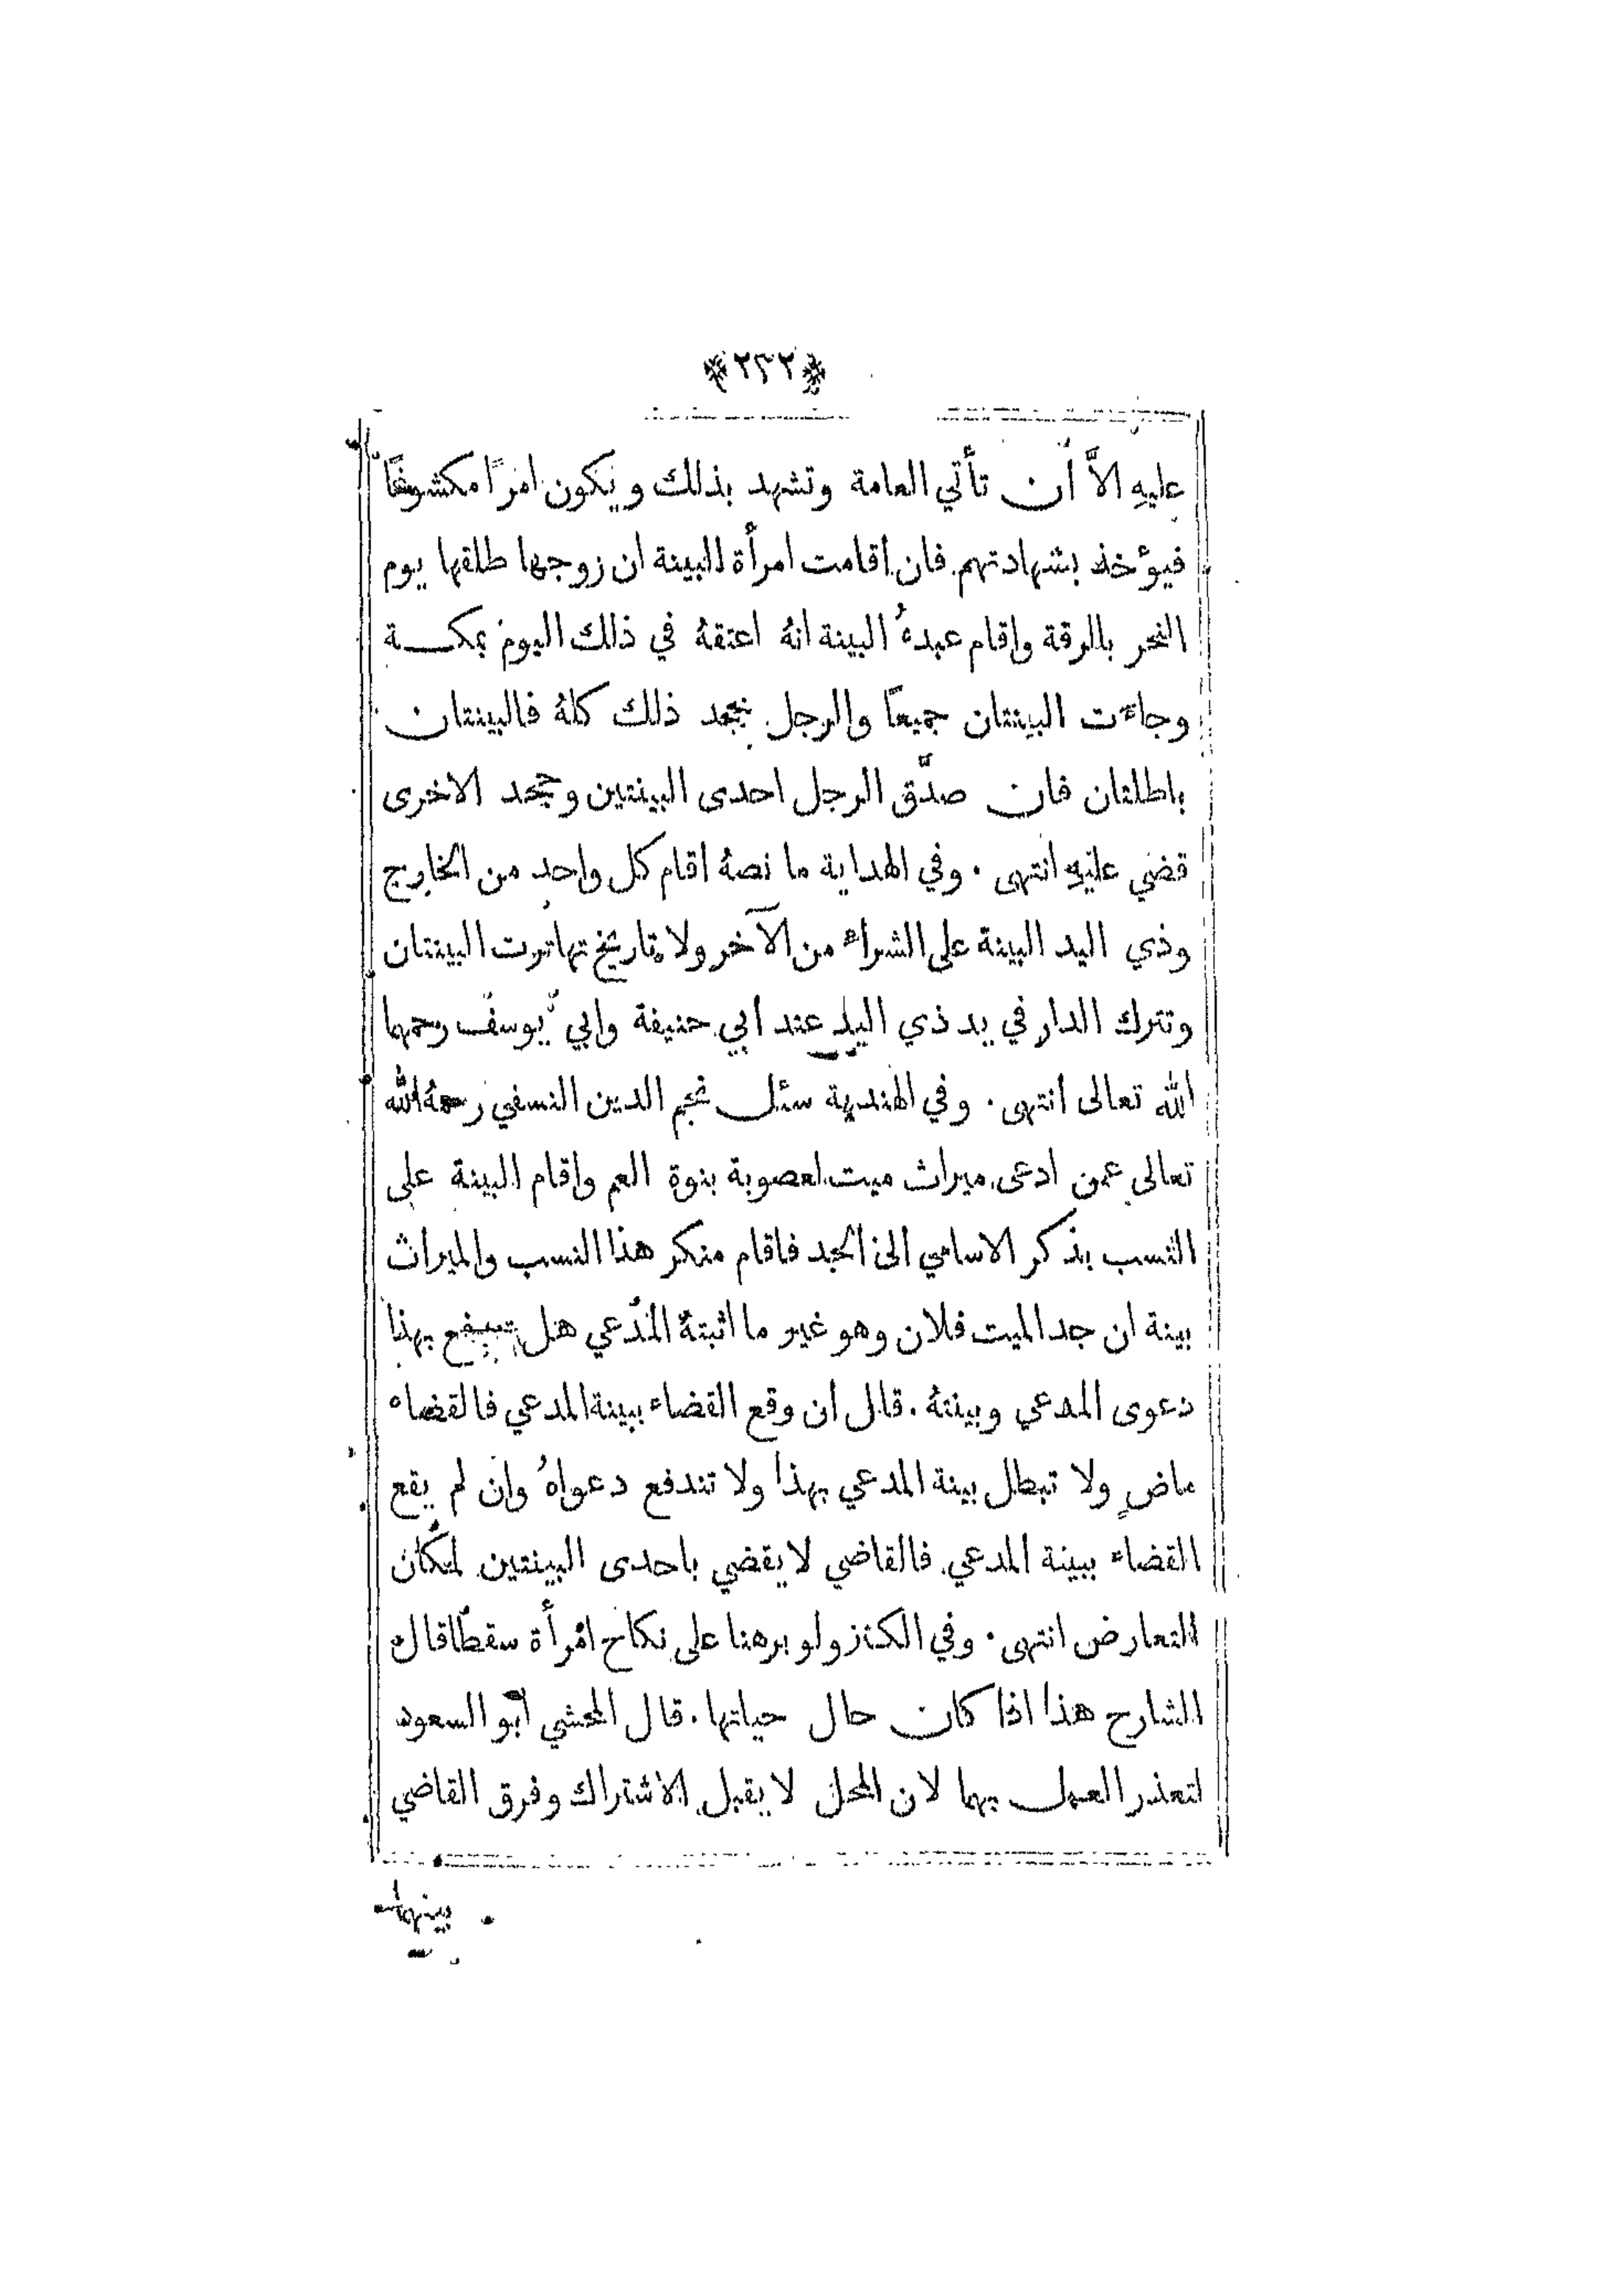 ﴿٢٣٢﴾
عليهِ الاَّ أن تأتي العامة وتشهد بذلك ويكون امرًا مكشوفًا
فيؤخذ بشهادتهم فان اقامت امرأة البينة ان زوجها طلقها يوم
النحر بالرقة واقام عبدهُ البينة انهُ اعتقهُ في ذلك اليوم بمكـــة
وجاءت البينتان جميعًا والرجل يجحد ذلك كلهُ فالبينتان
باطلتان فان صدَّق الرجل احدى البينتين وجحد الاخرى
قضي عليهِ انتهى . وفي الهداية ما نصهُ اقام كل واحد من الخارج
وذي اليد البينة على الشراء من الآخر ولا تاريخ تهاترت البينتان
وتترك الدار في يد ذي اليد عند ابي حنيفة وابي يوسف رحمهما
الله تعالى انتهى . وفي الهندية سئل نجم الدين النسفي رحمهُ الله
تعالى عمن ادعى ميراث ميت لعصوبة بنوة العم واقام البينة على
النسب بذكر الاسامي الى الجد فاقام منكر هذا النسب والميراث
بينة ان جد الميت فلان وهو غير ما اثبتهُ المدَّعي هل تندفع بهذا
دعوى المدعي وبينتهُ . قال ان وقع القضاء ببينة المدعي فالقضاء
ماضٍ ولا تبطل بينة المدعي بهذا ولا تندفع دعواهُ وان لم يقع
القضاء ببينة المدعي فالقاضي لا يقضي باحدى البينتين لمكان
التعارض انتهى . وفي الكنز ولو برهنا على نكاح امرأة سقطا قال
الشارح هذا اذا كان حال حياتها . قال المحشي ابو السعود
لتعذر العمل بهما لان المحل لا يقبل الاشتراك وفرق القاضي
بينهما